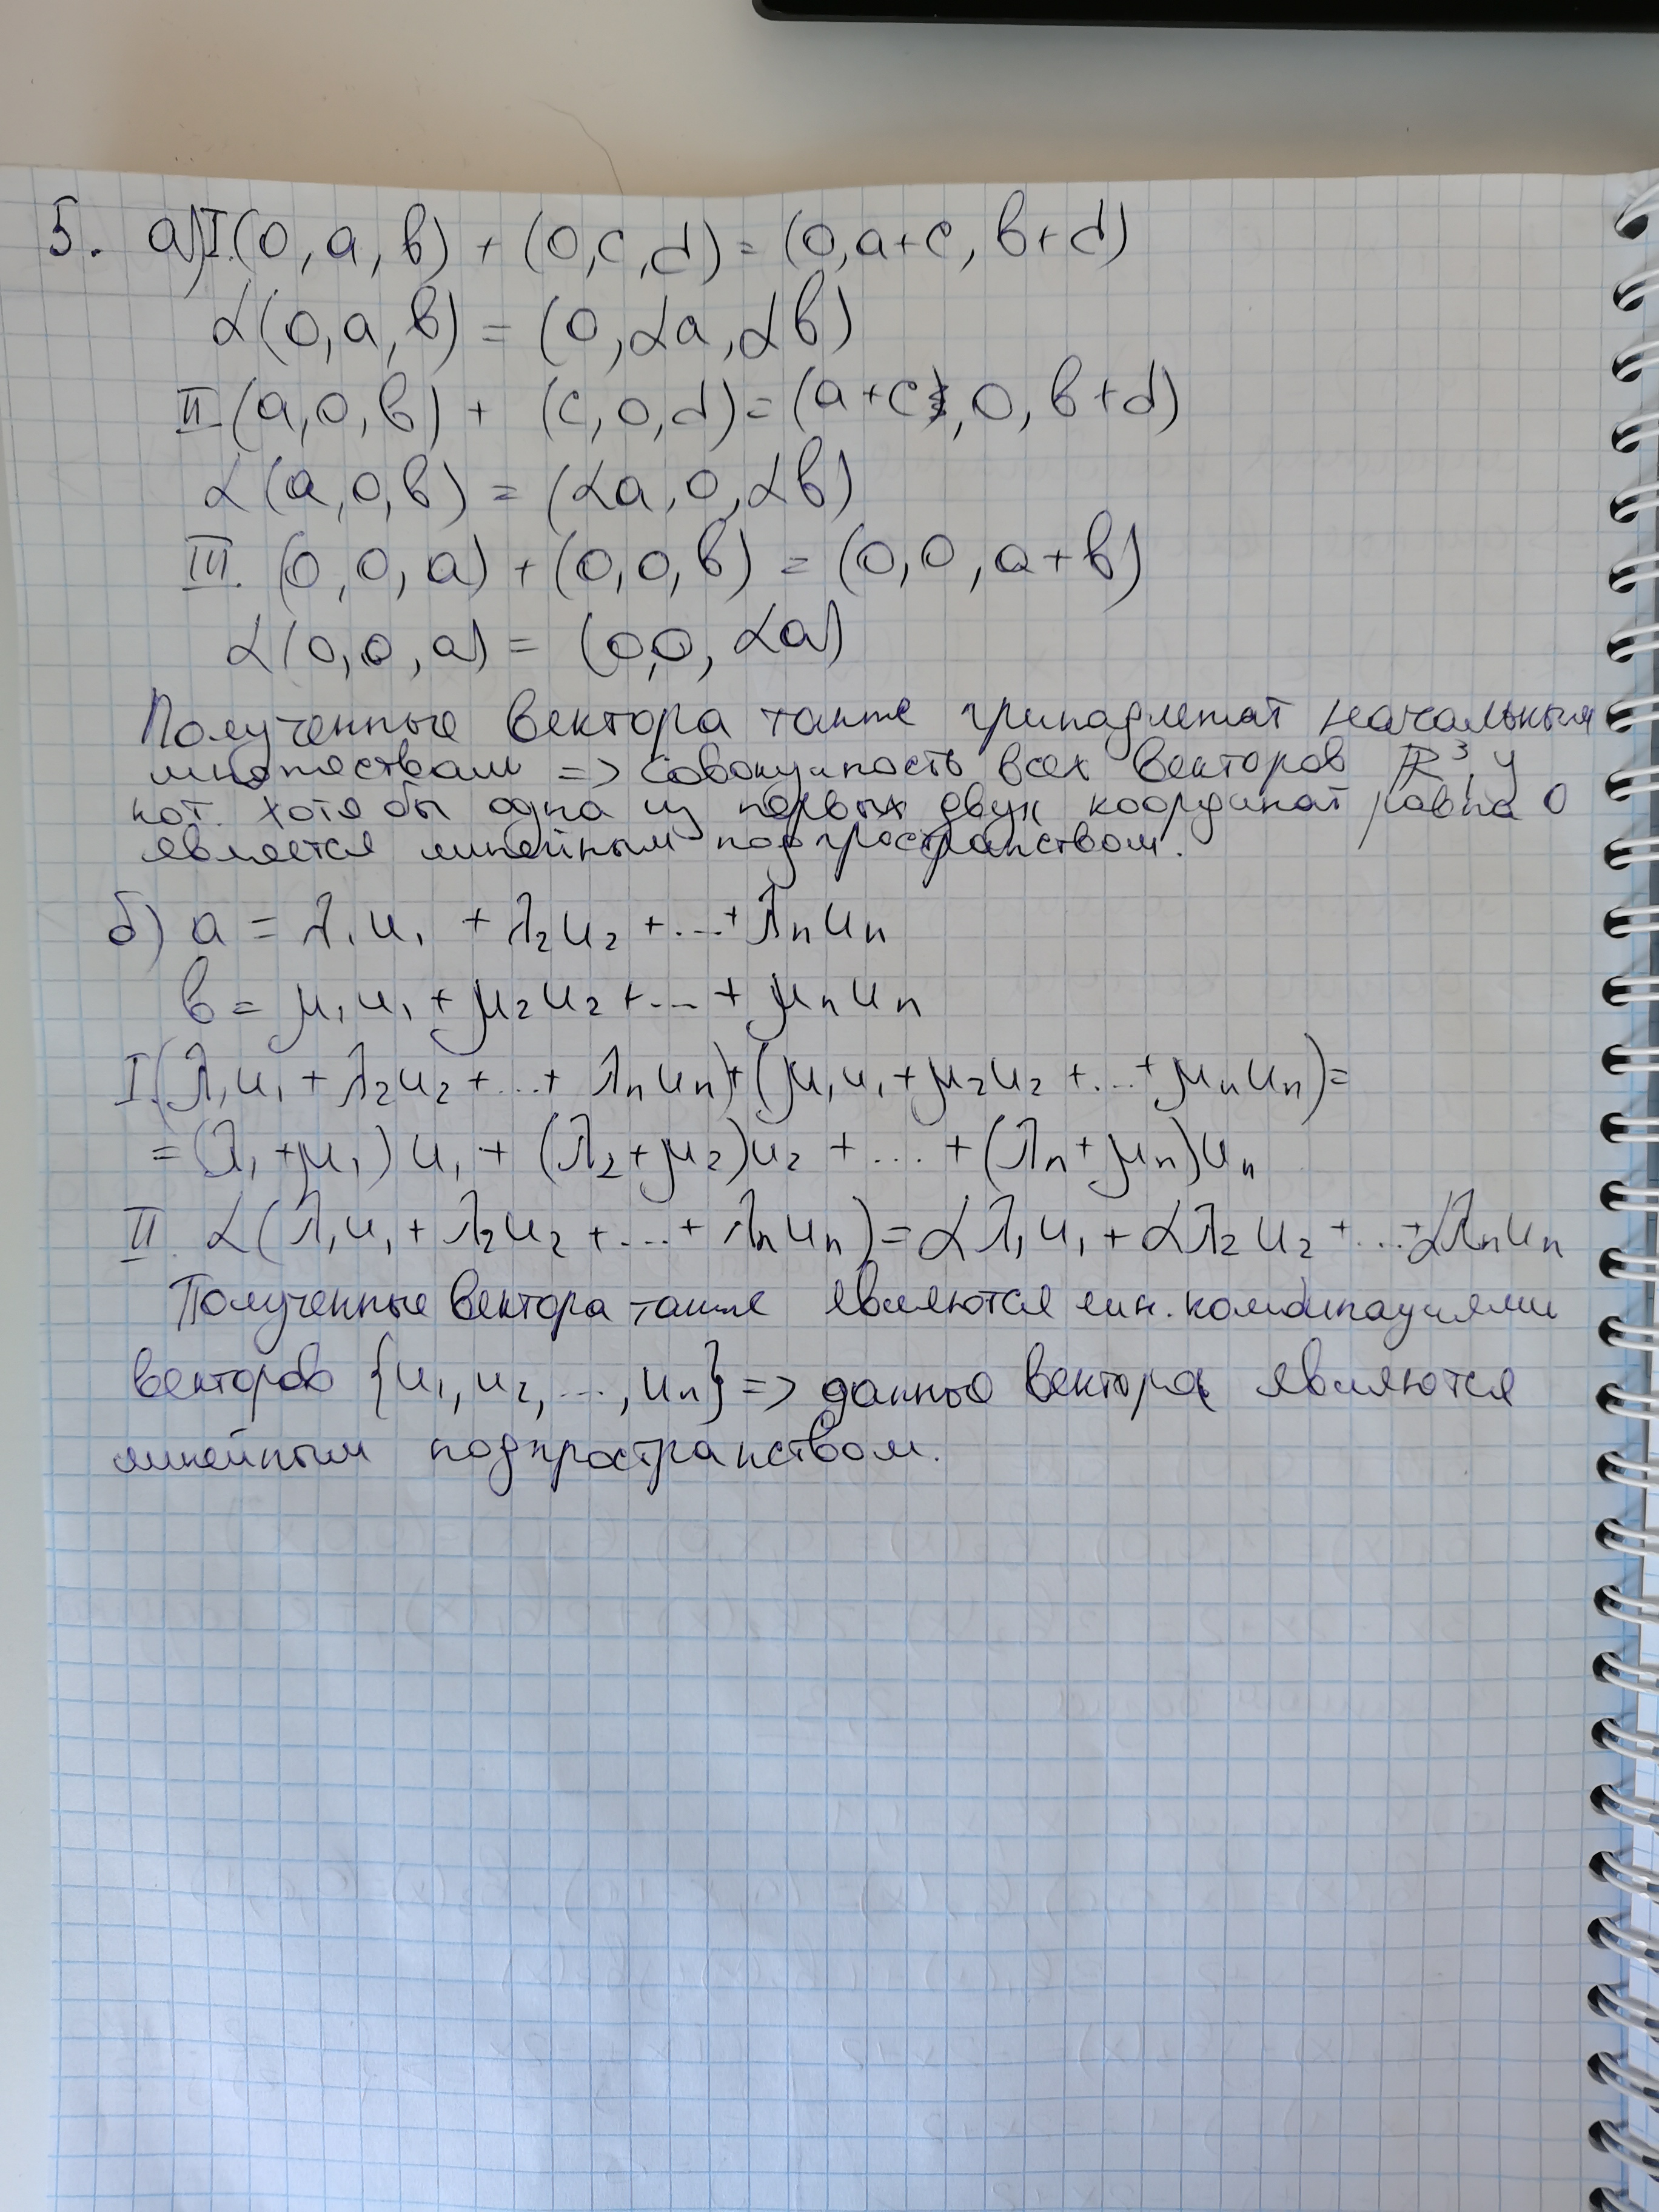 5. а) I. (0, a, b) + (0, c, d) = (0, a+c, b+d)
α(0, a, b) = (0, αa, αb)
II (a, 0, b) + (c, 0, d) = (a+c, 0, b+d)
α(a, 0, b) = (αa, 0, αb)
III. (0, 0, a) + (0, 0, b) = (0, 0, a+b)
α(0, 0, a) = (0,0, αa)
Полученные вектора также принадлежат начальным
множествам => совокупность всех векторов ℝ³, у
кот. хотя бы одна из первых двух координат равна 0
является линейным подпространством.
б) a = λ₁u₁ + λ₂u₂ + ... + λₙuₙ
b = μ₁u₁ + μ₂u₂ + ... + μₙuₙ
I. (λ₁u₁ + λ₂u₂ + ... + λₙuₙ) + (μ₁u₁ + μ₂u₂ + ... + μₙuₙ) =
= (λ₁ + μ₁)u₁ + (λ₂ + μ₂)u₂ + ... + (λₙ + μₙ)uₙ
II. α(λ₁u₁ + λ₂u₂ + ... + λₙuₙ) = αλ₁u₁ + αλ₂u₂ + ... + αλₙuₙ
Полученные вектора также являются лин. комбинациями
векторов {u₁, u₂, ..., uₙ} => данные вектора являются
линейным подпространством.